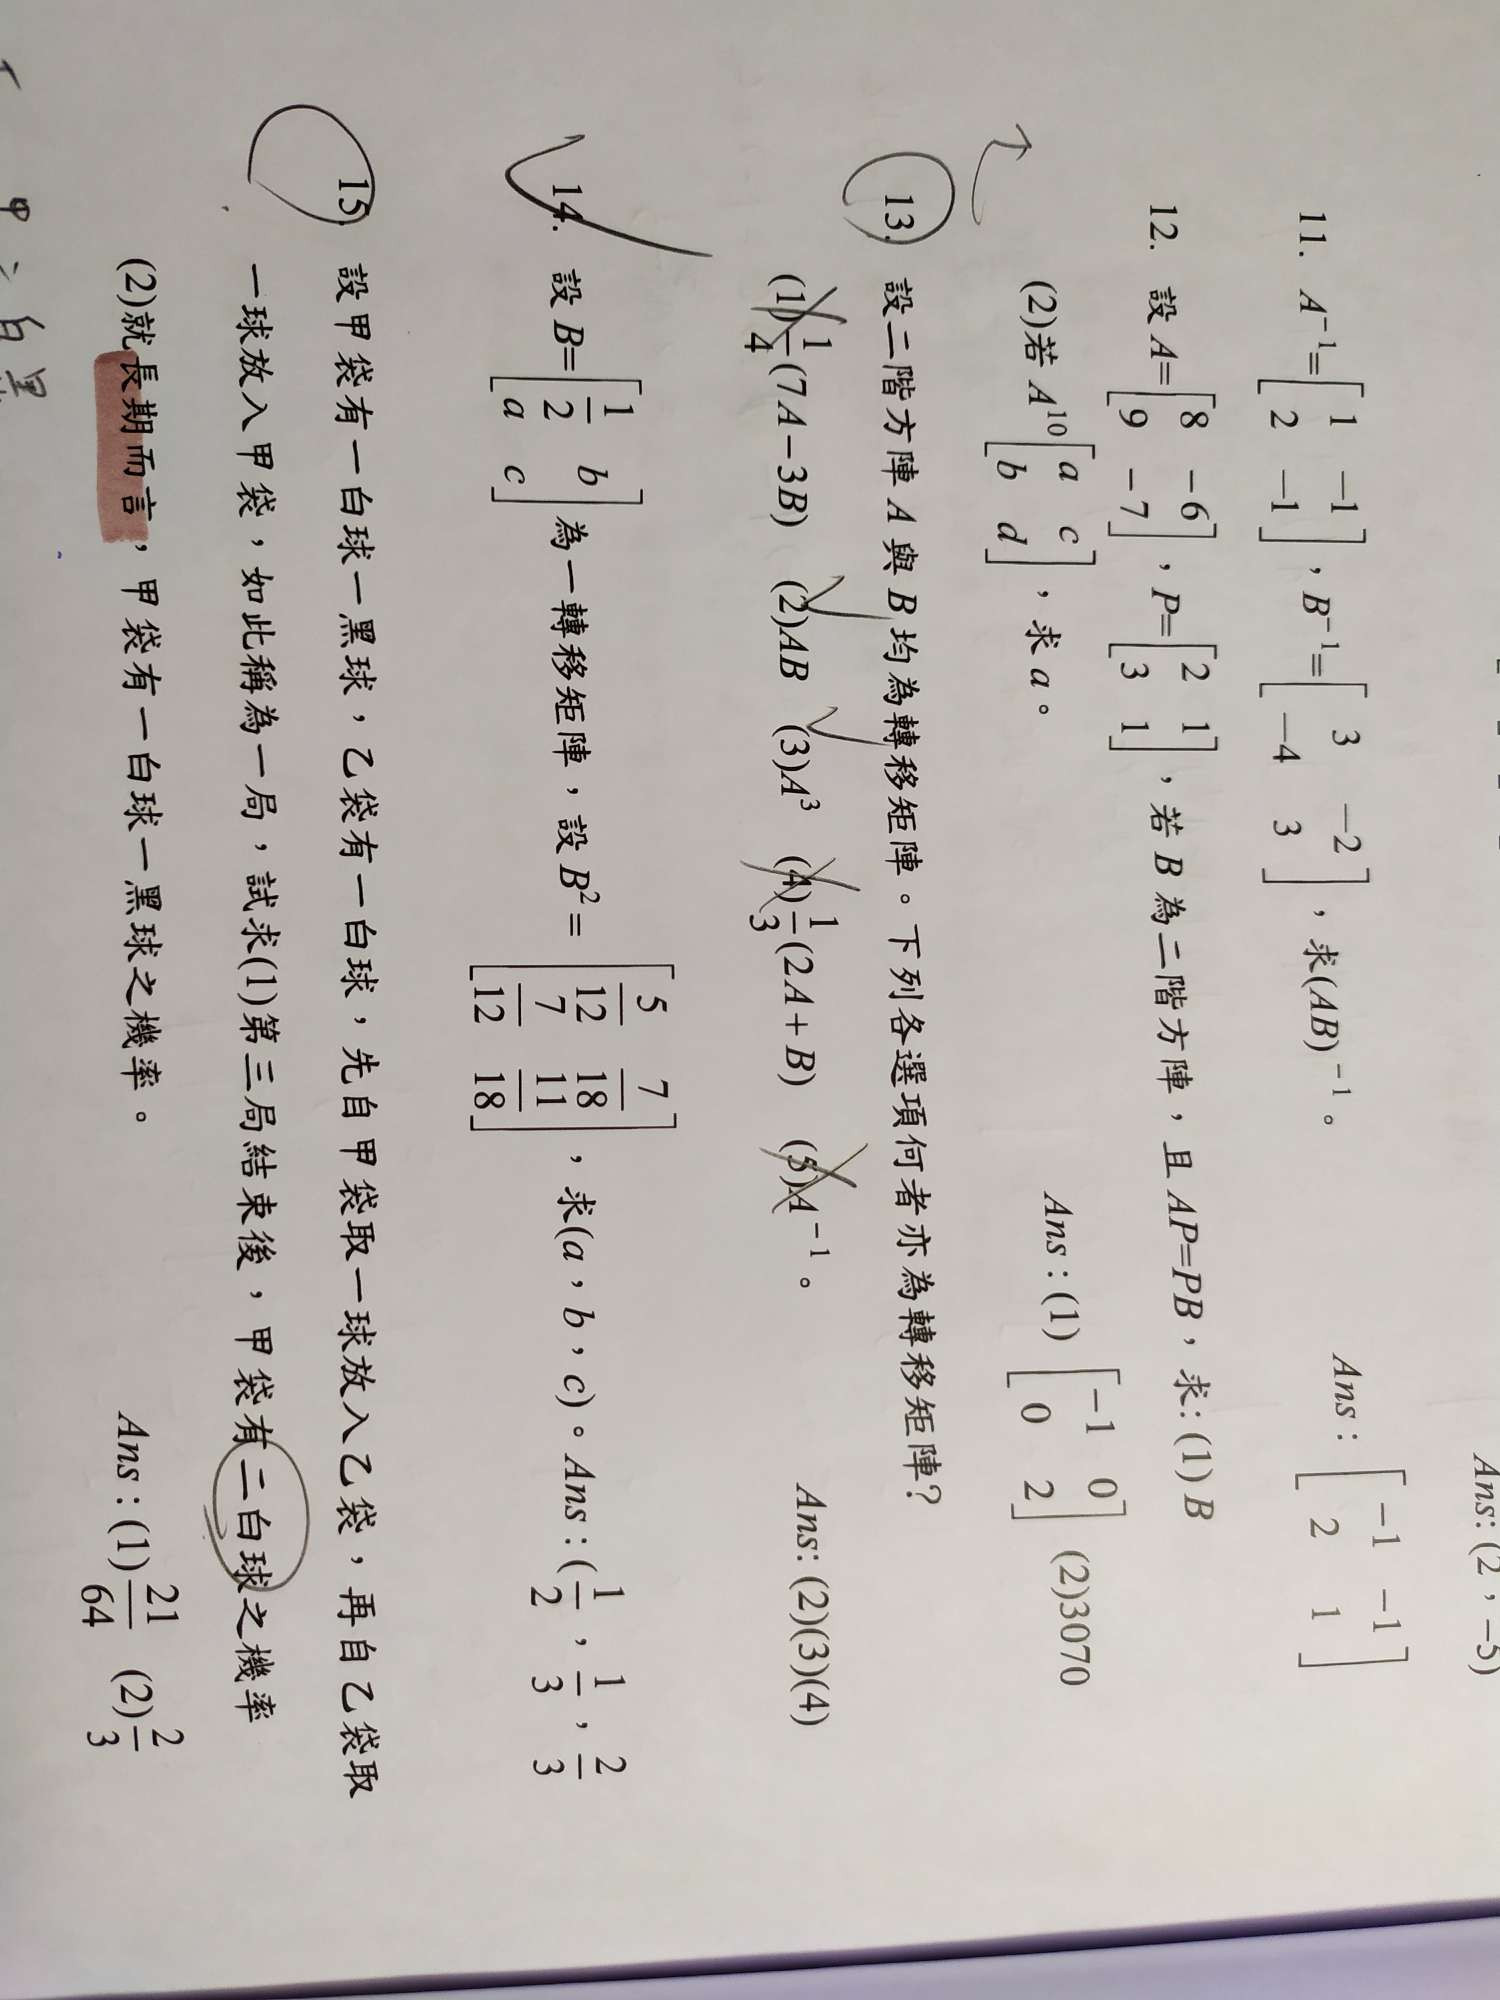 Ans: (2, −5)
11. A⁻¹=[1 −1; 2 −1], B⁻¹=[3 −2; −4 3], 求(AB)⁻¹。
Ans: [−1 −1; 2 1]
12. 設 A=[8 −6; 9 −7], P=[2 1; 3 1], 若 B 為二階方陣, 且 AP=PB, 求: (1) B
(2)若 A¹⁰[a c; b d], 求 a。
Ans: (1) [−1 0; 0 2] (2)3070
13. 設二階方陣 A 與 B 均為轉移矩陣。下列各選項何者亦為轉移矩陣?
(1)1/4(7A−3B) (2)AB (3)A³ (4)1/3(2A+B) (5)A⁻¹。
Ans: (2)(3)(4)
14. 設 B=[1/2 b; a c] 為一轉移矩陣, 設 B²=[5/12 7/18; 7/12 11/18], 求(a, b, c)。Ans: (1/2, 1/3, 2/3
15. 設甲袋有一白球一黑球, 乙袋有一白球, 先自甲袋取一球放入乙袋, 再自乙袋取
一球放入甲袋, 如此稱為一局, 試求(1)第三局結束後, 甲袋有二白球之機率
(2)就長期而言, 甲袋有一白球一黑球之機率。
Ans: (1)21/64 (2)2/3